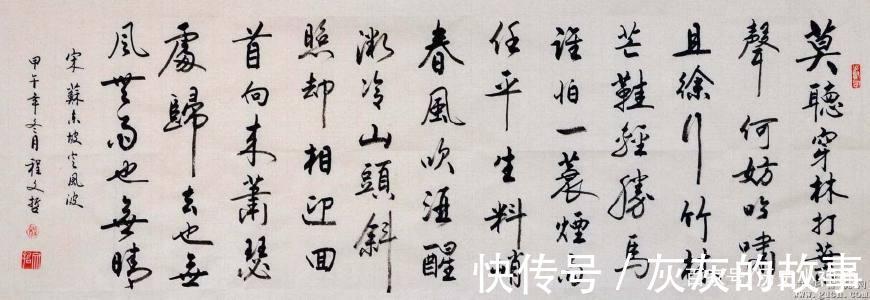 莫聽穿林打葉
聲何妨吟嘯
且徐行竹杖
芒鞋輕勝馬
誰怕一蓑煙雨
任平生料峭
春風吹酒醒
微冷山頭斜
照却相迎回
首向来蕭瑟
處歸去也無
風雨也無晴
宋蘇東坡定風波
甲午年冬月程文哲
快传号/灰灰的故事